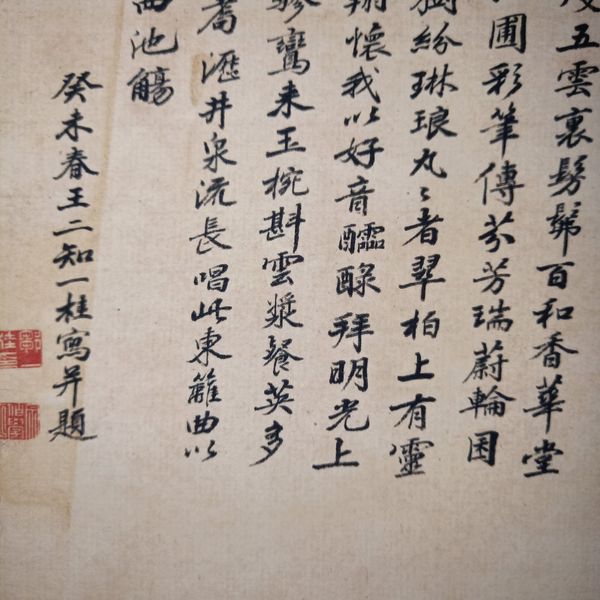 五雲裏髣髴百和香華堂
圃彩筆傳芬芳瑞蔚輪囷
紛琳琅丸〻者翠柏上有靈
翔懷我以好音醽醁拜明光上
驂鸞来玉椀斟雲漿餐英多
瀝井泉流長唱此東籬曲以
西池觴
癸未春王二知一桂寫并題